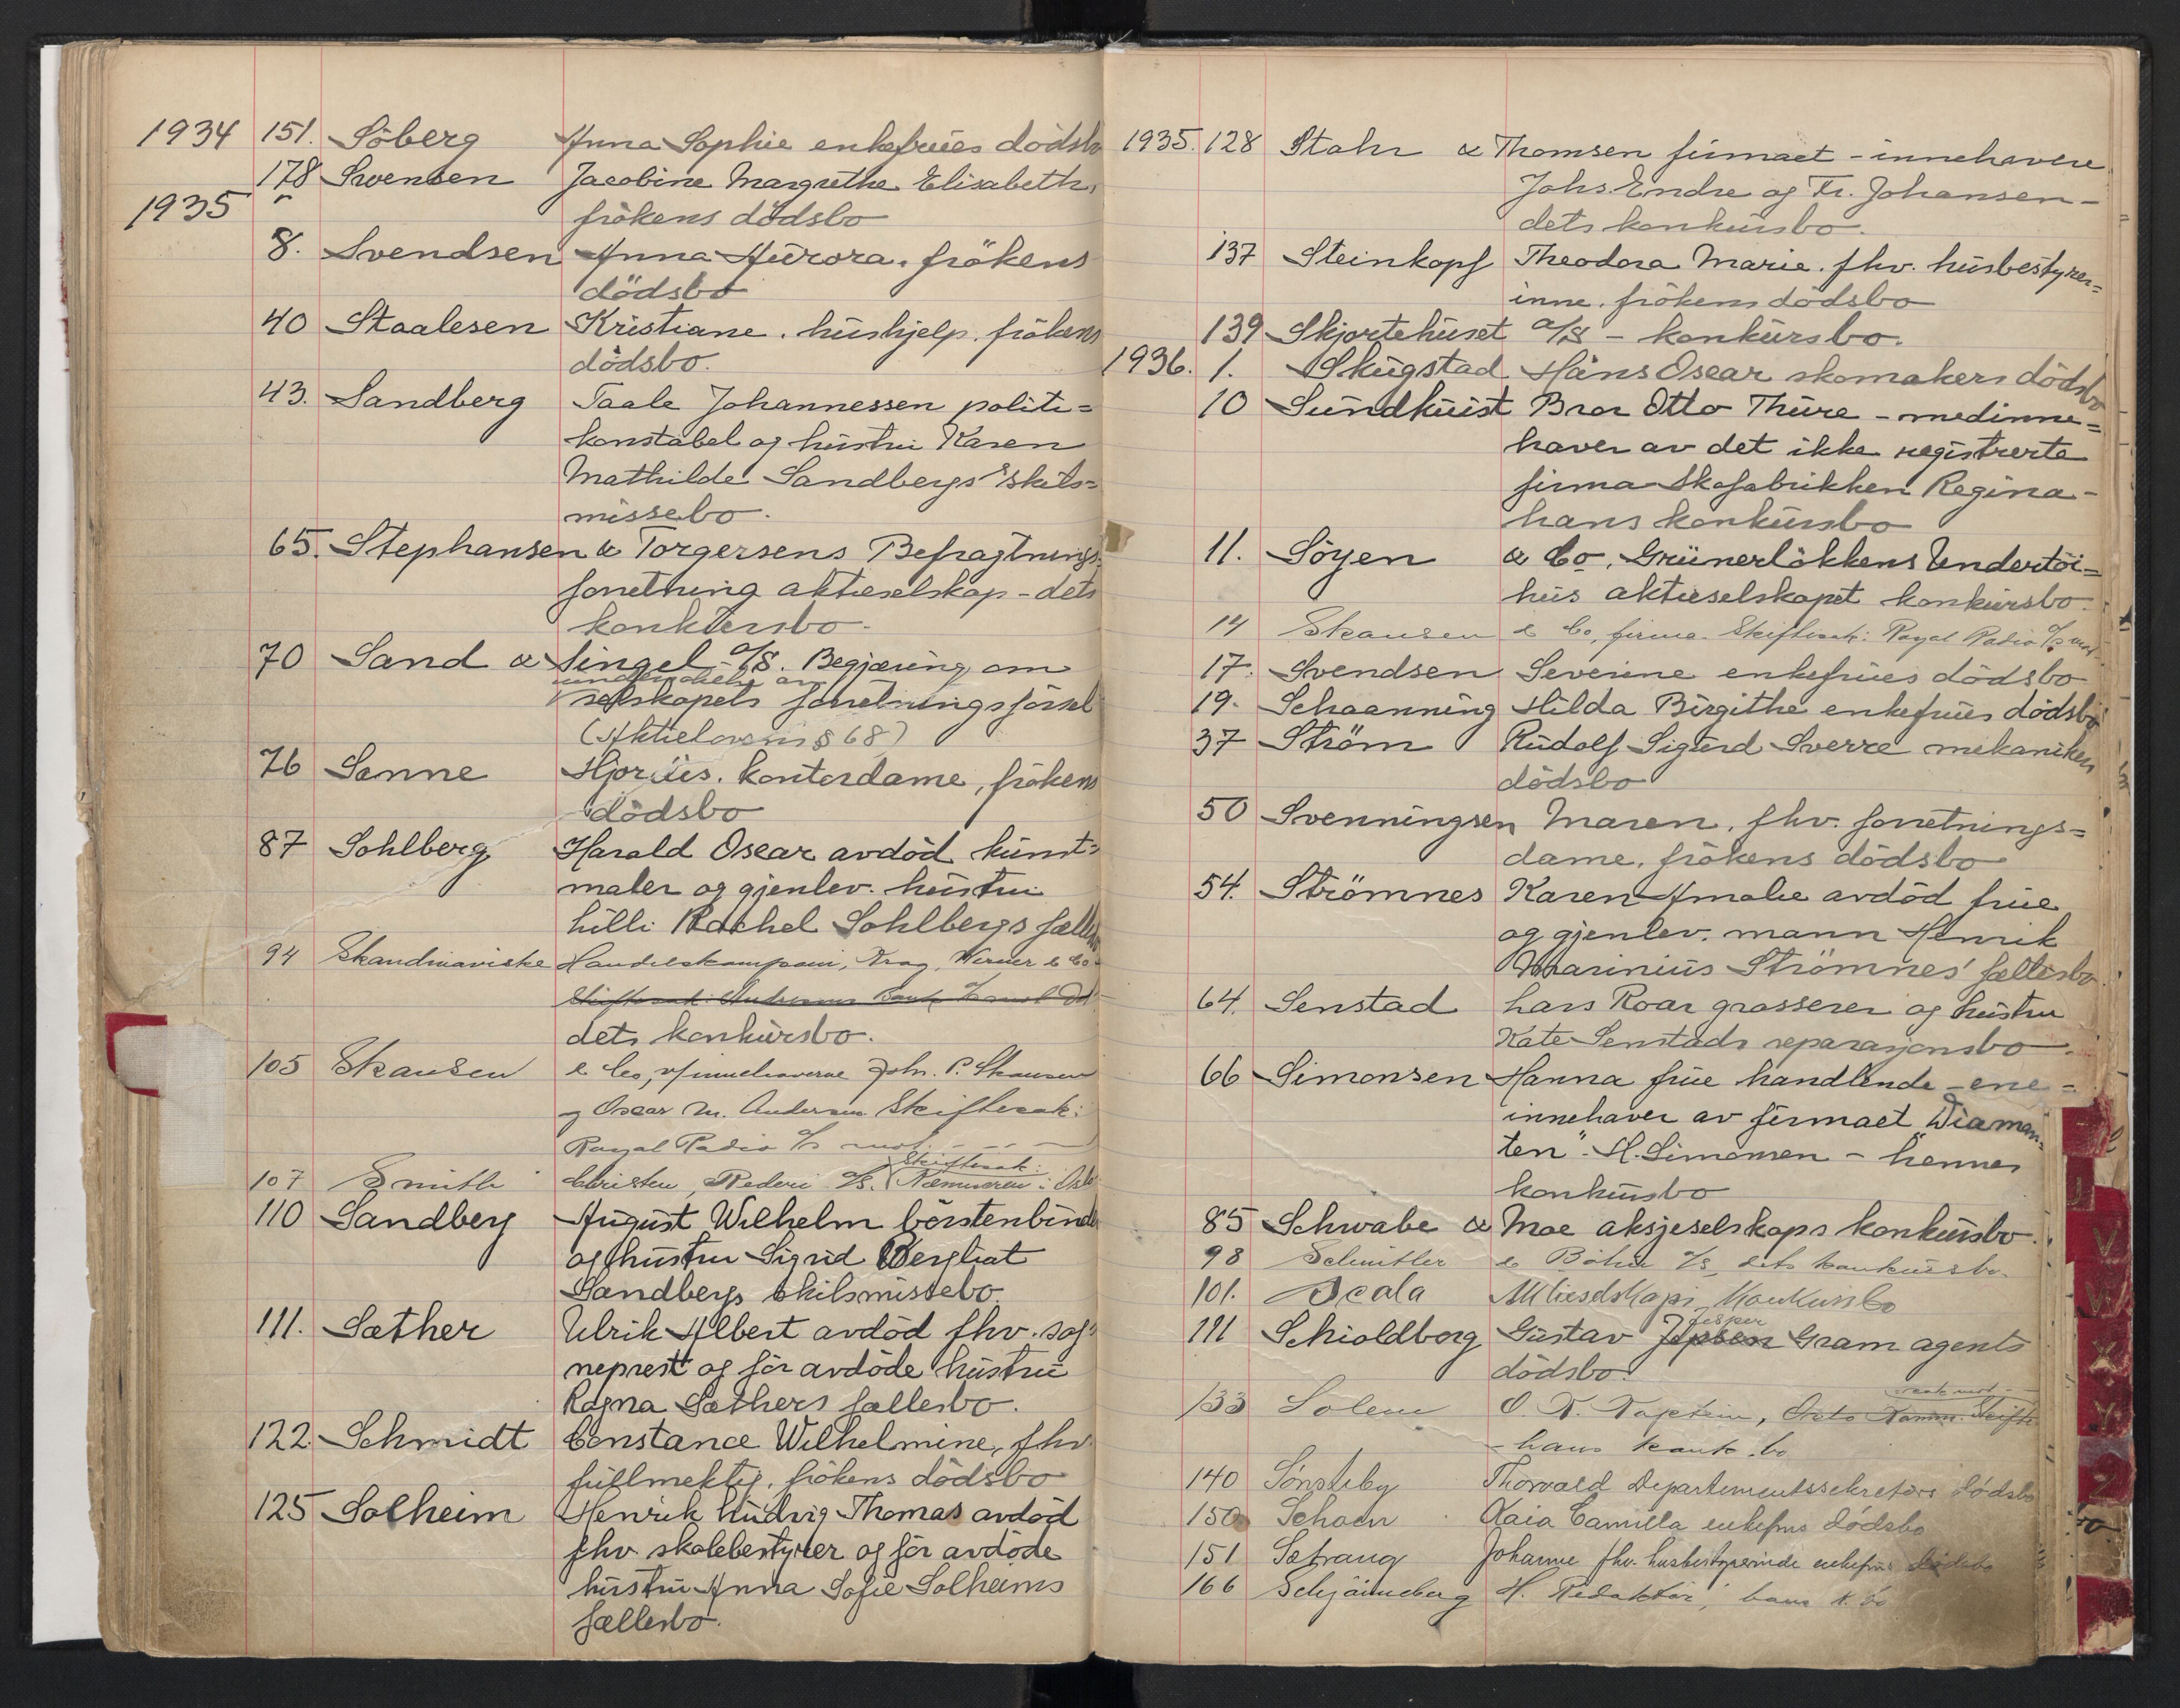 1934 151. Söberg Anna Sophie enkefrues dödsbo
178 Svensen Jacobine Margrethe Elisabeth,
1935 frökens dödsbo
8. Svendsen Anna Aurora. frökens
dödsbo
40 Staalesen Kristiane. hushjelp. frökens
dödsbo.
43. Sandberg Taale Johannessen politi=
konstabel og hustru Karen
Mathilde Sandbergs skils=
missebo.
65. Stephansen & Torgersens Befragtnings
forretning aktieselskap - dets
konkursbo.
70 Sand & Singel a/s. Begjæring om
undersøkelse av
selskapets forretningsförsel
(Aktielovens § 68)
76 Sanne Hjördis. kontordame, frökens
dödsbo
87 Sohlberg Harald Oscar avdöd kunst=
maler og gjenlev. hustru
Lilli Rachel Sohlbergs fællesbo
94 Skandinaviske Handelskompani, Krag, Werner & Co
Skiftesak: Bank
dets konkursbo.
105 Skausen & Co, v/innehaverne John. P. Skausen
og Oscar M. Andersen Skiftesak:
Royal Radio A/s mot. - - -
107 Smith Christen, Rederi A/s. Skiftesak:
110 Sandberg August Wilhelm börstenbinder
og hustru Sigrid Bergliot
Sandbergs skilsmissebo.
111. Sæther Ulrik Albert avdöd fhv. sog=
neprest og för avdöde hustru
Ragna Sæthers fællesbo.
122. Schmidt Constance Wilhelmine, fhv.
fullmektig. frökens dödsbo
125 Solheim Henrik Ludvig Thomas avdöd
fhv. skolebestyrer og för avdöde
hustru Anna Sofie Solheims
fællesbo.
1935. 128 Stahr & Thomsen firmaet - innehavere
Johs. Endre og Fr. Johansen -
dets konkursbo.
137 Steinkopf Theodora Marie. fhv. husbestyrer=
inne. frökens dödsbo
139 Skjortehuset a/s - konkursbo.
1936. 1. Skugstad Hans Oscar skomakers dödsbo
10 Sundkuist Bror Otto Thure - medinne=
haver av det ikke registrerte
firma Skofabrikken Regina -
hans konkursbo
11. Söyen & Co, Grünerlökkens Undertöi=
hus aktieselskapet konkursbo.
14 Skausen & Co, firma. Skiftesak: Royal Radio A/s mot
17. Svendsen Severine enkefrues dödsbo
19. Schaanning Hilda Birgithe enkefrues dödsbo
37 Ström Rudolf Sigurd Sverre mekanikers
dödsbo
50 Svenningsen Maren. fhv. forretnings=
dame. frökens dödsbo
54. Strömnes Karen Amalie avdöd frue
og gjenlev. mann Henrik
Marinius Strömnes' fællesbo.
64. Senstad Lars Roar grosserer og hustru
Kate Senstads reparasjonsbo.
66 Simonsen Hanna frue handlende - ene=
innehaver av firmaet "Diaman=
ten" - H. Simonsen - hennes
konkursbo
85 Schwabe & Moe aksjeselskaps konkursbo.
98 Schnitler & Böhn A/s, dets konkursbo.
101. Scala Aktieselskaps Konkursbo
111 Schioldborg Gustav Jepsen Jesper Gram agents
dödsbo.
133 Solem O. K. Kaptein,
hans konk. bo
140 Sönsteby Thorvald Departementssekretærs dödsbo
150 Schoen Kaia Camilla enkefrus dödsbo
151 Sætrang Johanne fhv. husbestyrerinde enkefrus dödsbo
166 Schjánneberg H. Redaktör, hans k. bo
V
W
X
Y